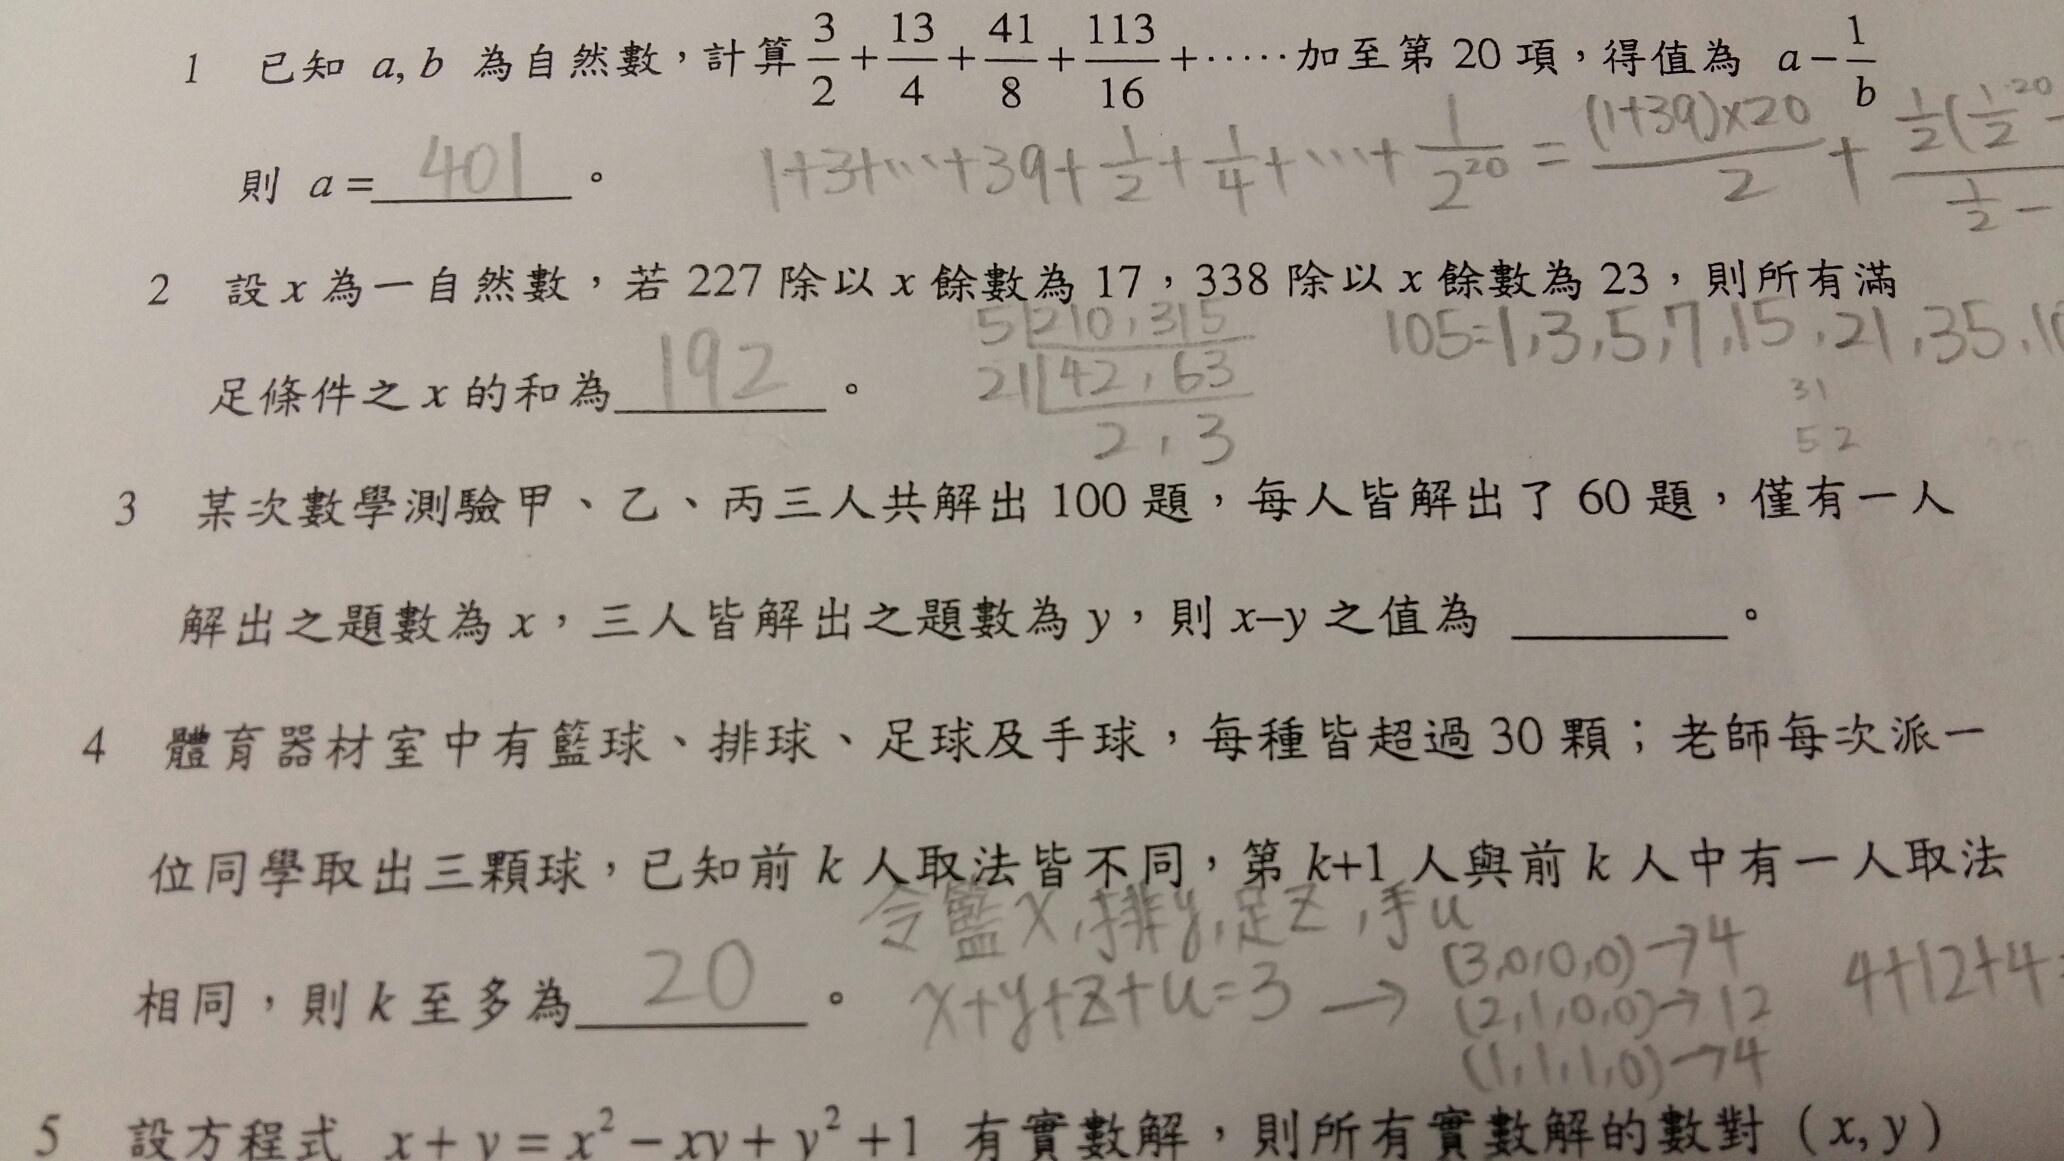 1 已知 a, b 為自然數，計算 3/2 + 13/4 + 41/8 + 113/16 + ‥‥‥加至第 20 項，得值為 a − 1/b
則 a = 401 。
1+3+⋯+39+1/2+1/4+⋯+1/2^20 = (1+39)×20/2 +
2 設 x 為一自然數，若 227 除以 x 餘數為 17，338 除以 x 餘數為 23，則所有滿
足條件之 x 的和為 192 。
5 210, 315
21 42, 63
2, 3
105=1,3,5,7,15,21,35,
31
52
3 某次數學測驗甲、乙、丙三人共解出 100 題，每人皆解出了 60 題，僅有一人
解出之題數為 x，三人皆解出之題數為 y，則 x–y 之值為 ________。
4 體育器材室中有籃球、排球、足球及手球，每種皆超過 30 顆；老師每次派一
位同學取出三顆球，已知前 k 人取法皆不同，第 k+1 人與前 k 人中有一人取法
相同，則 k 至多為 20 。
令籃x,排y,足z,手u
x+y+z+u=3 → (3,0,0,0)→4
(2,1,0,0)→12
(1,1,1,0)→4
4+12+4
5 設方程式 x + y = x² − xy + y² + 1 有實數解，則所有實數解的數對（x, y）